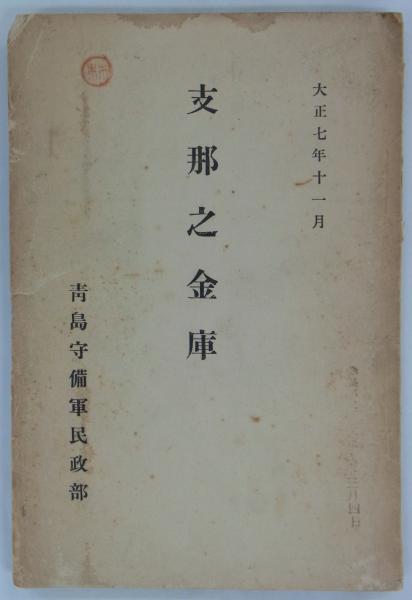 大正七年十一月
支那之金庫
青島守備軍民政部